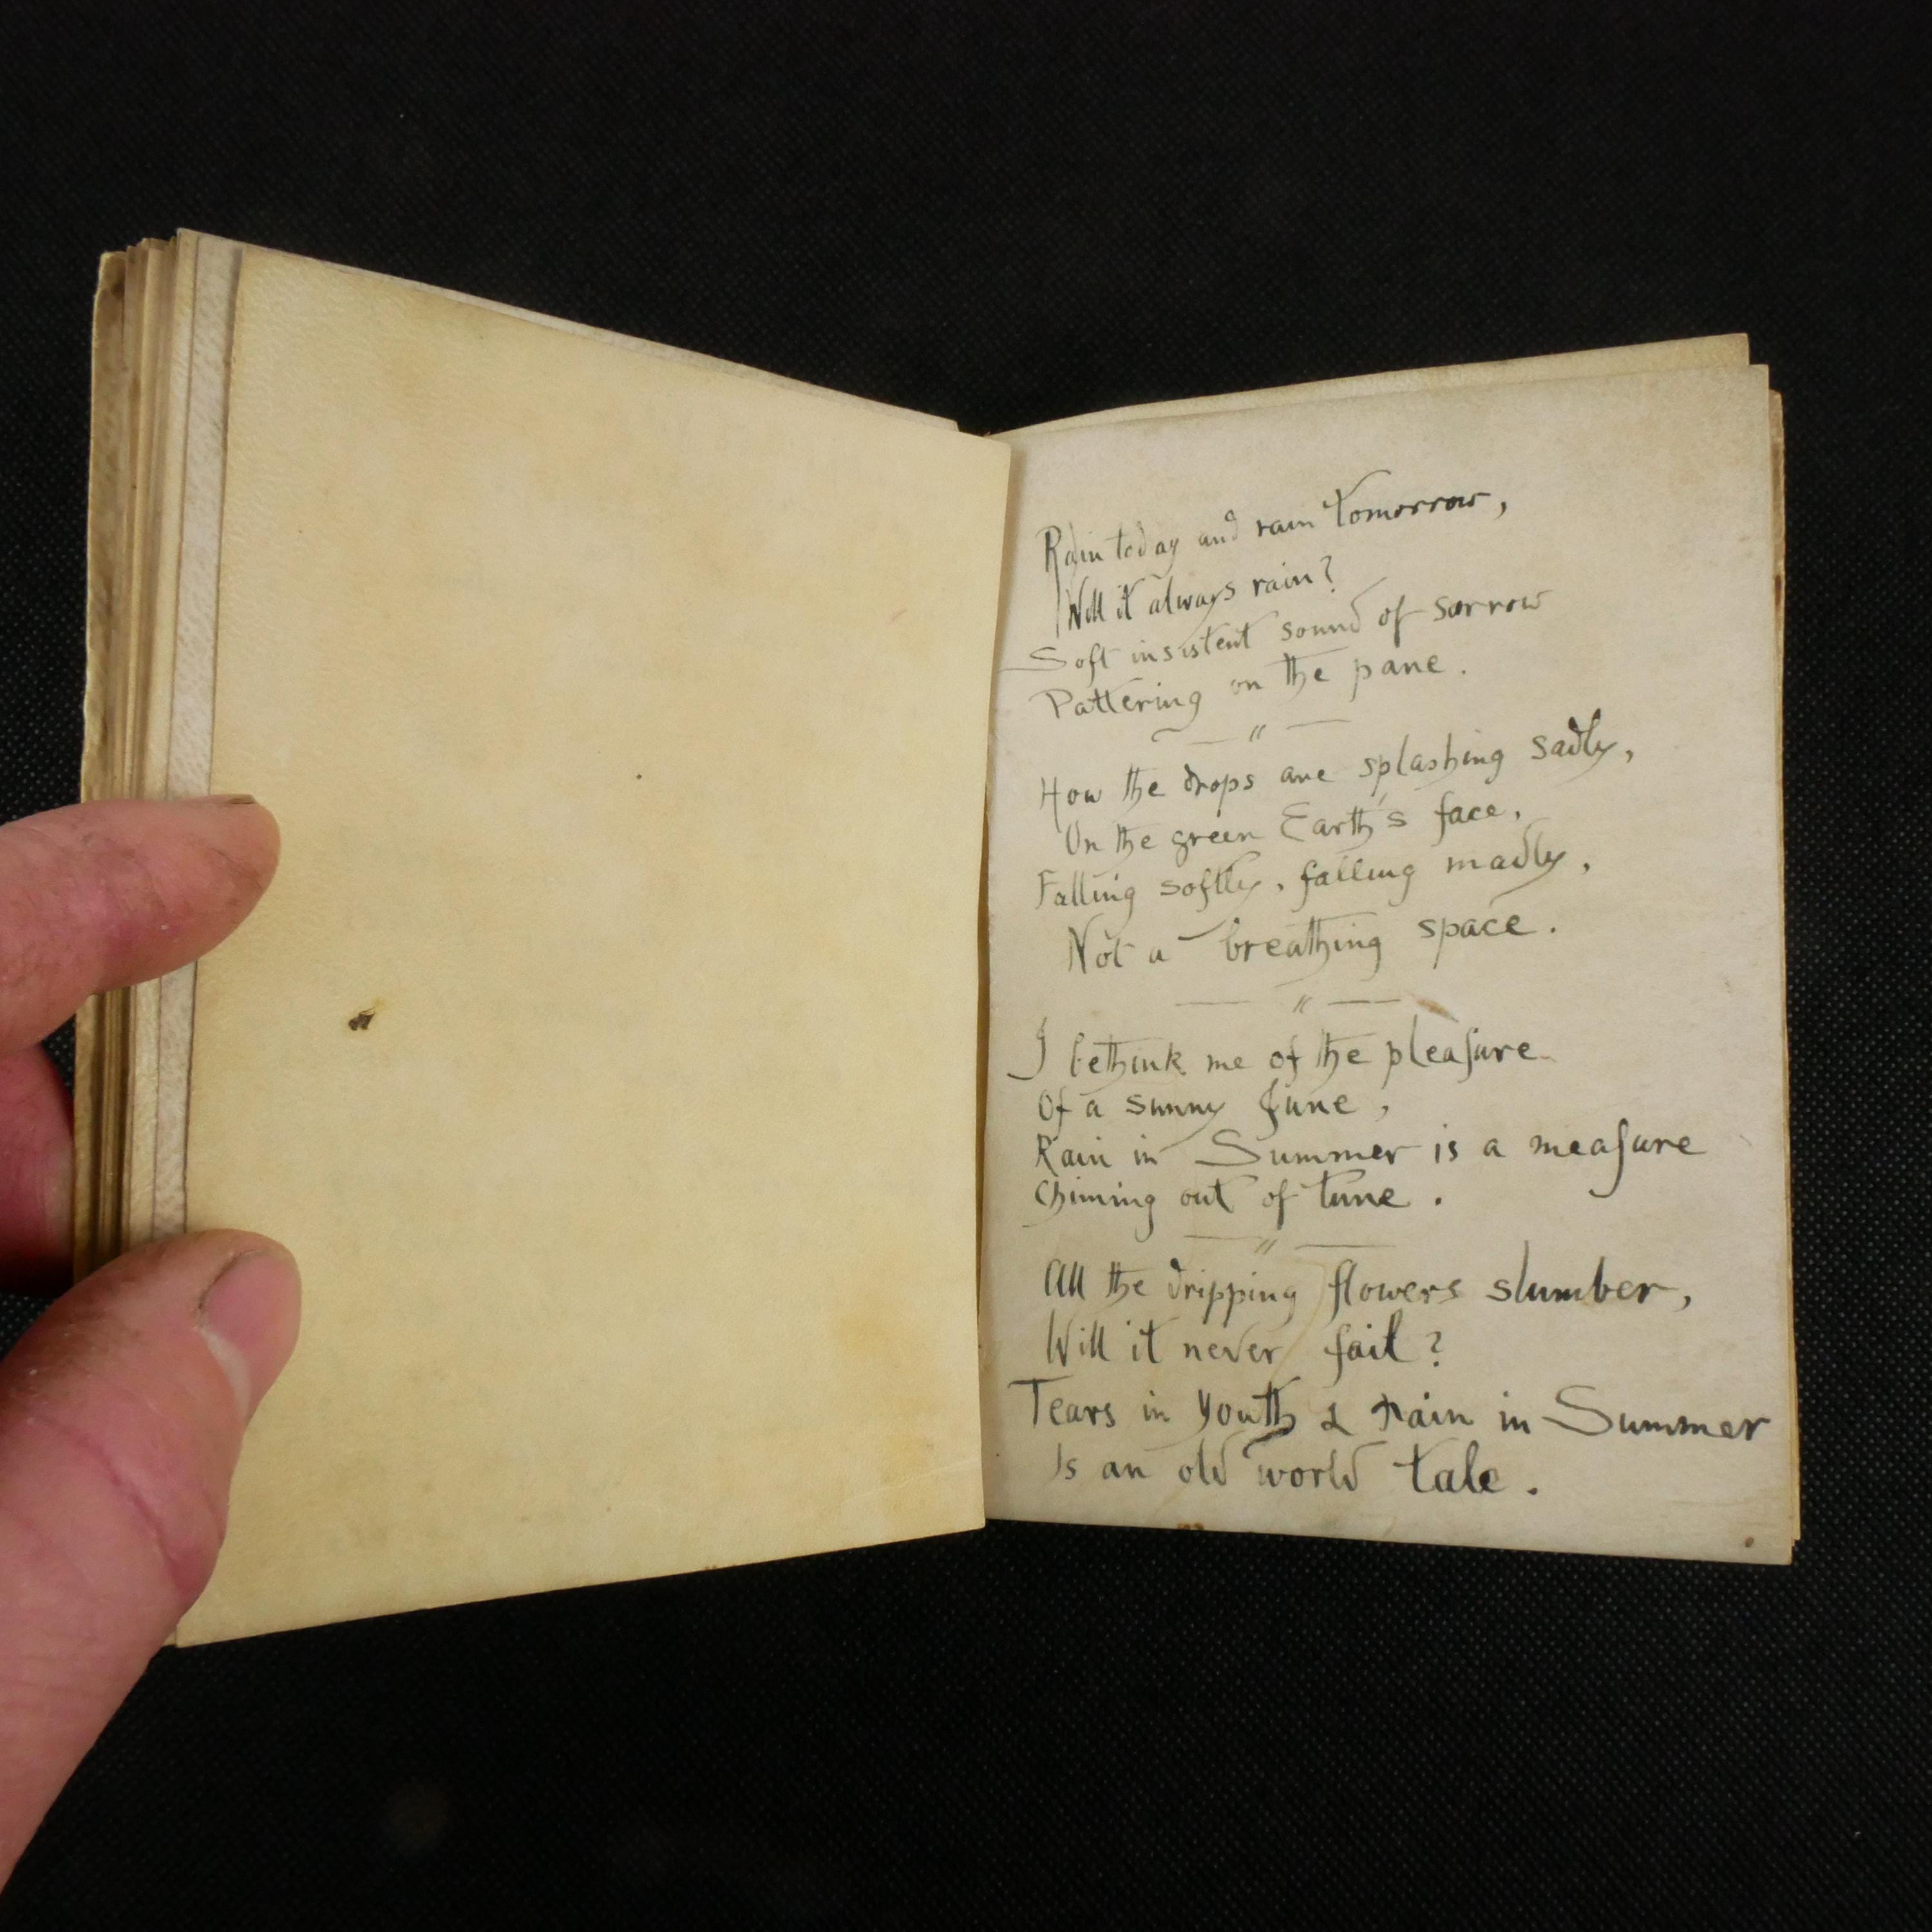 Rain today and rain tomorrow,
Will it always rain?
Soft insistent sound of sorrow
Pattering on the pane.
— " —
How the drops are splashing sadly,
On the green Earth's face,
Falling softly, falling madly,
Not a breathing space.
— " —
I bethink me of the pleaſure
Of a sunny June,
Rain in Summer is a meaſure
Chiming out of tune.
— " —
All the dripping flowers slumber,
Will it never fail?
Tears in Youth & rain in Summer
Is an old world tale.